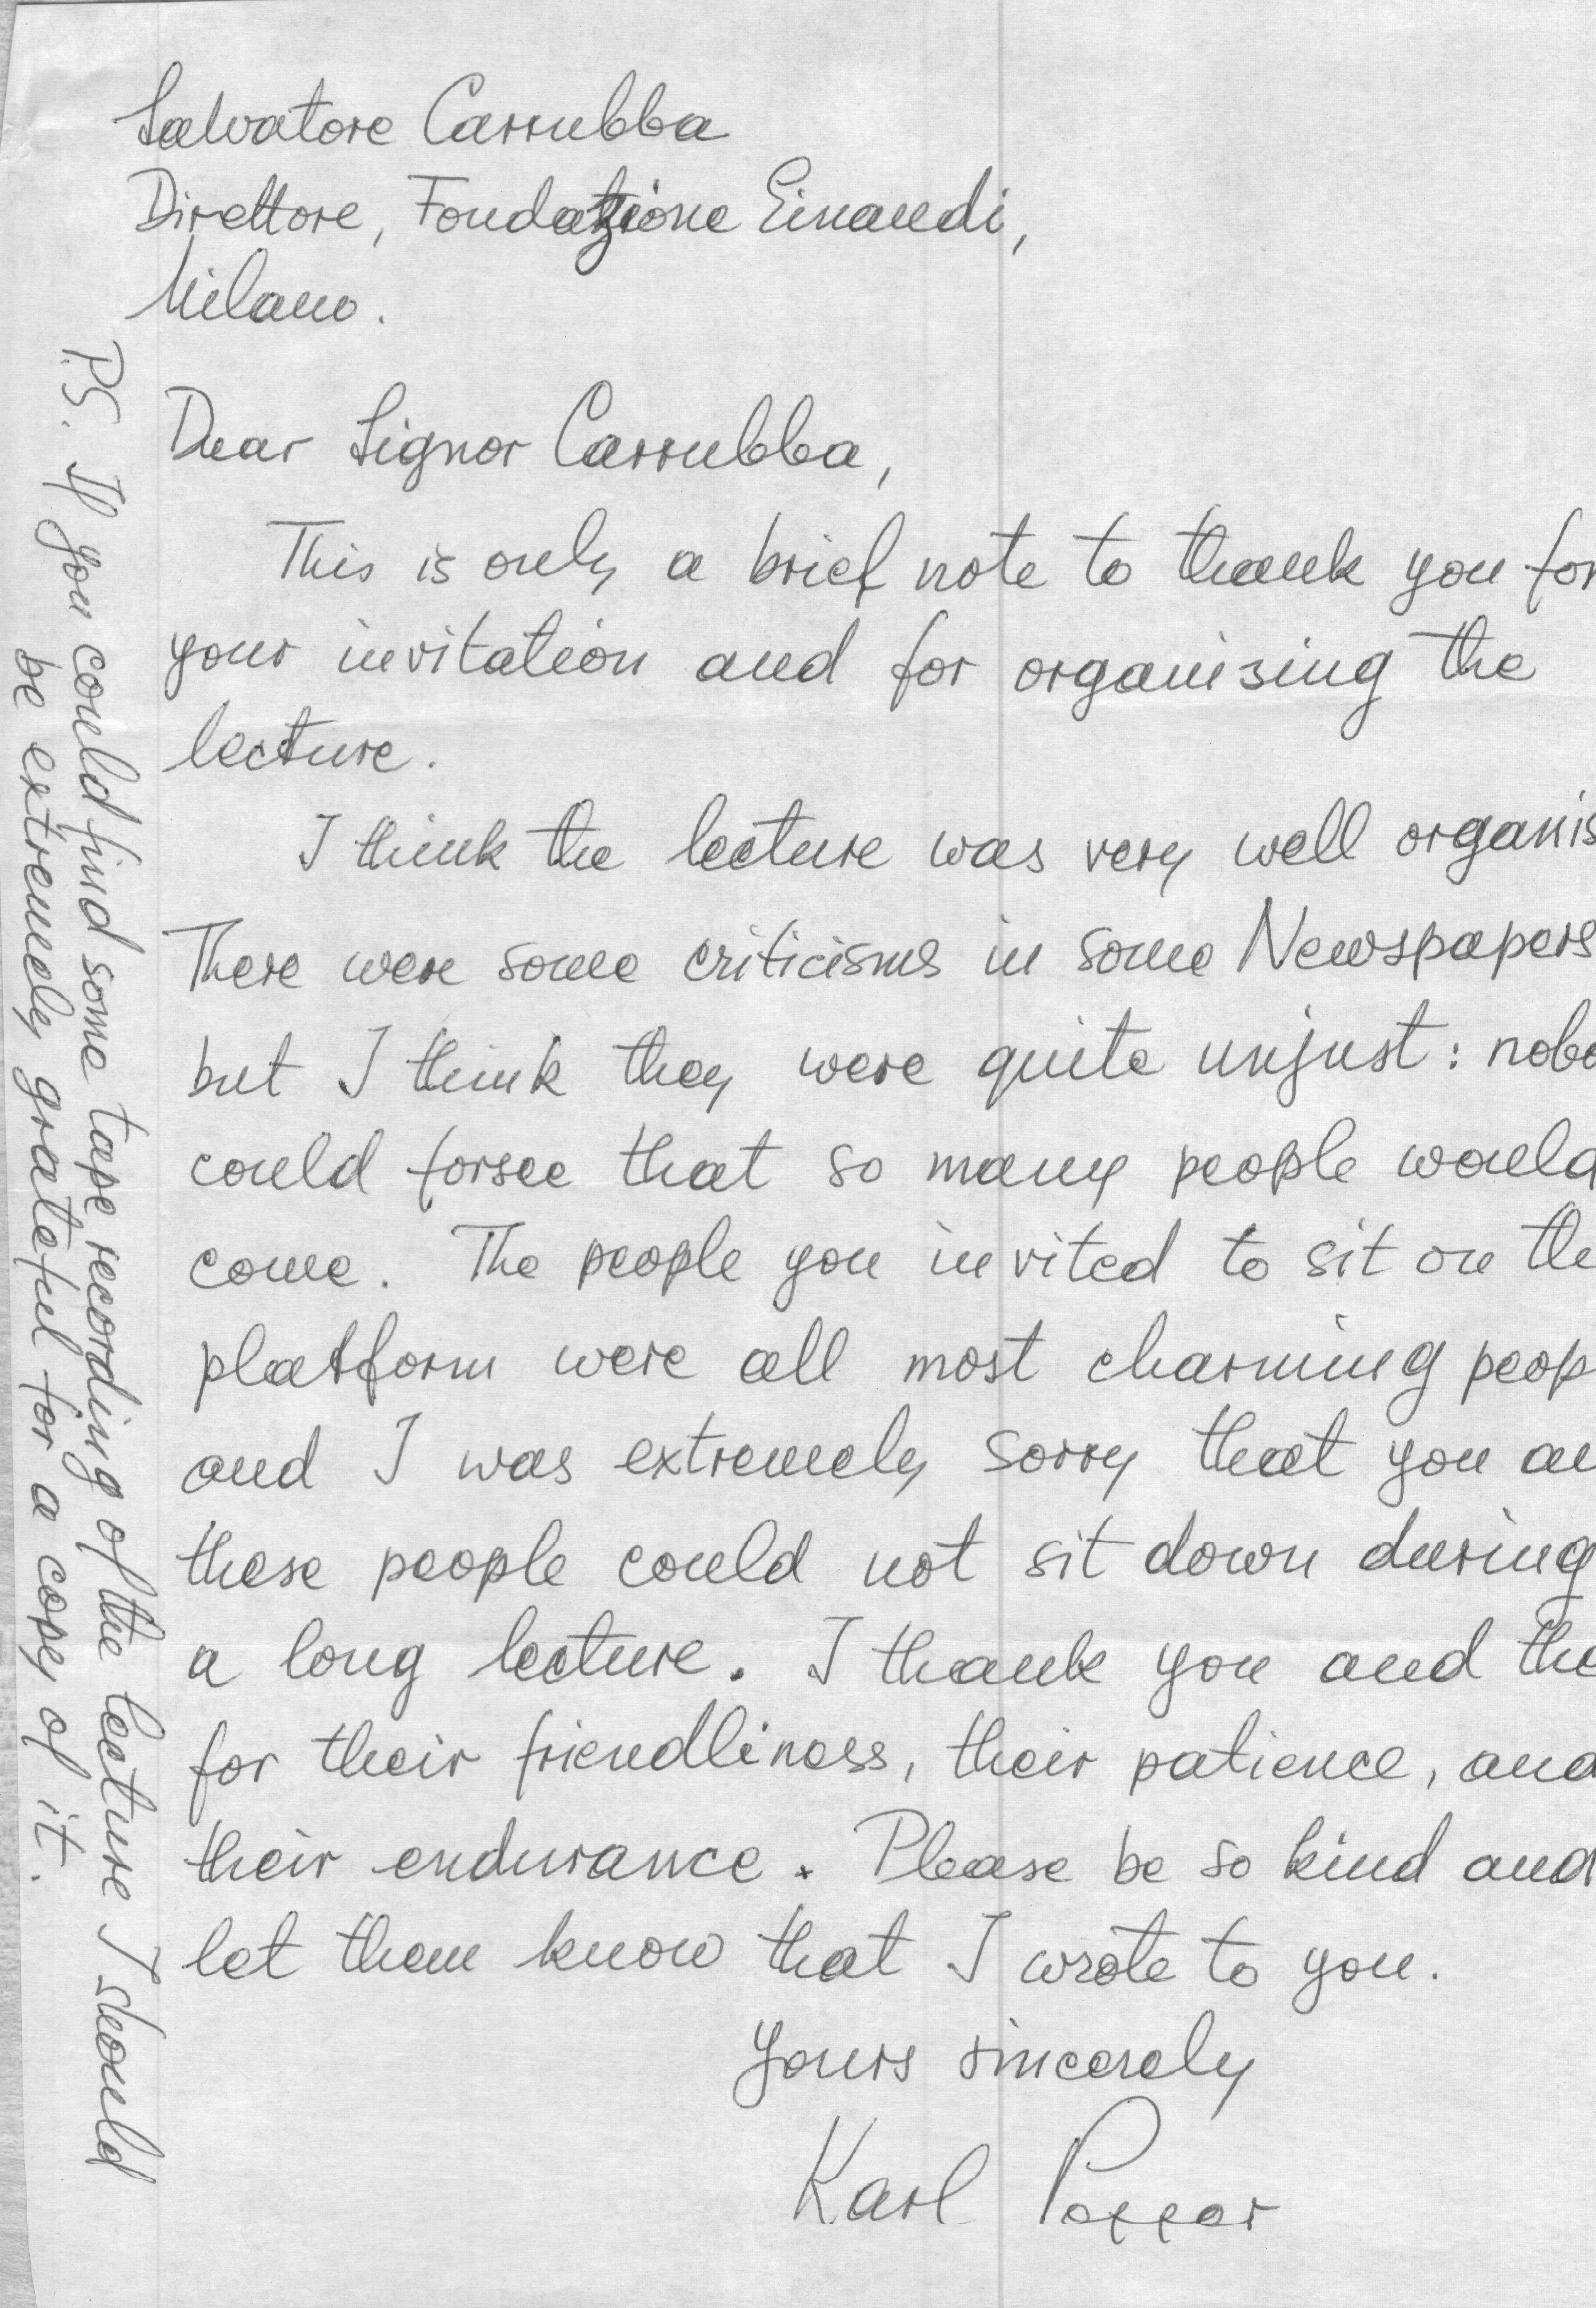 Salvatore Carrubba
Direttore, Fondazione Einaudi,
Milano.
Dear Signor Carrubba,
This is only a brief note to thank you for
your invitation and for organising the
lecture.
I think the lecture was very well organis
There were some criticisms in some Newspapers
but I think they were quite unjust: nobo
could forsee that so many people would
come. The people you invited to sit on the
platform were all most charming peop
and I was extremely sorry that you an
these people could not sit down during
a long lecture. I thank you and the
for their friendliness, their patience, and
their endurance. Please be so kind and
let them know that I wrote to you.
Yours sincerely
Karl Popper
P.S. If you could find some tape recording of the lecture I should
be extremely grateful for a copy of it.